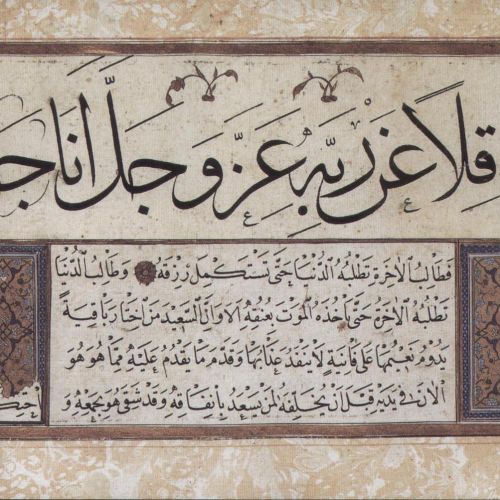 قلاً عن ربِّه عزَّ وجلَّ انا ج
فطالب الاخرة تطلبه الدنيا حتى يستكمل رزقه وطالب الدنيا
تطلبه الاخرة حتى يأخذه الموت بعنقه الا وان السعيد من اختار باقية
يدوم نعيمها على فانية لا ينفد عذابها وقدم ما يقدم عليه مما هو هو
الان في يديه قبل ان يخلفه لمن يسعد بانفاقه وقد شقى هو بجمعه و